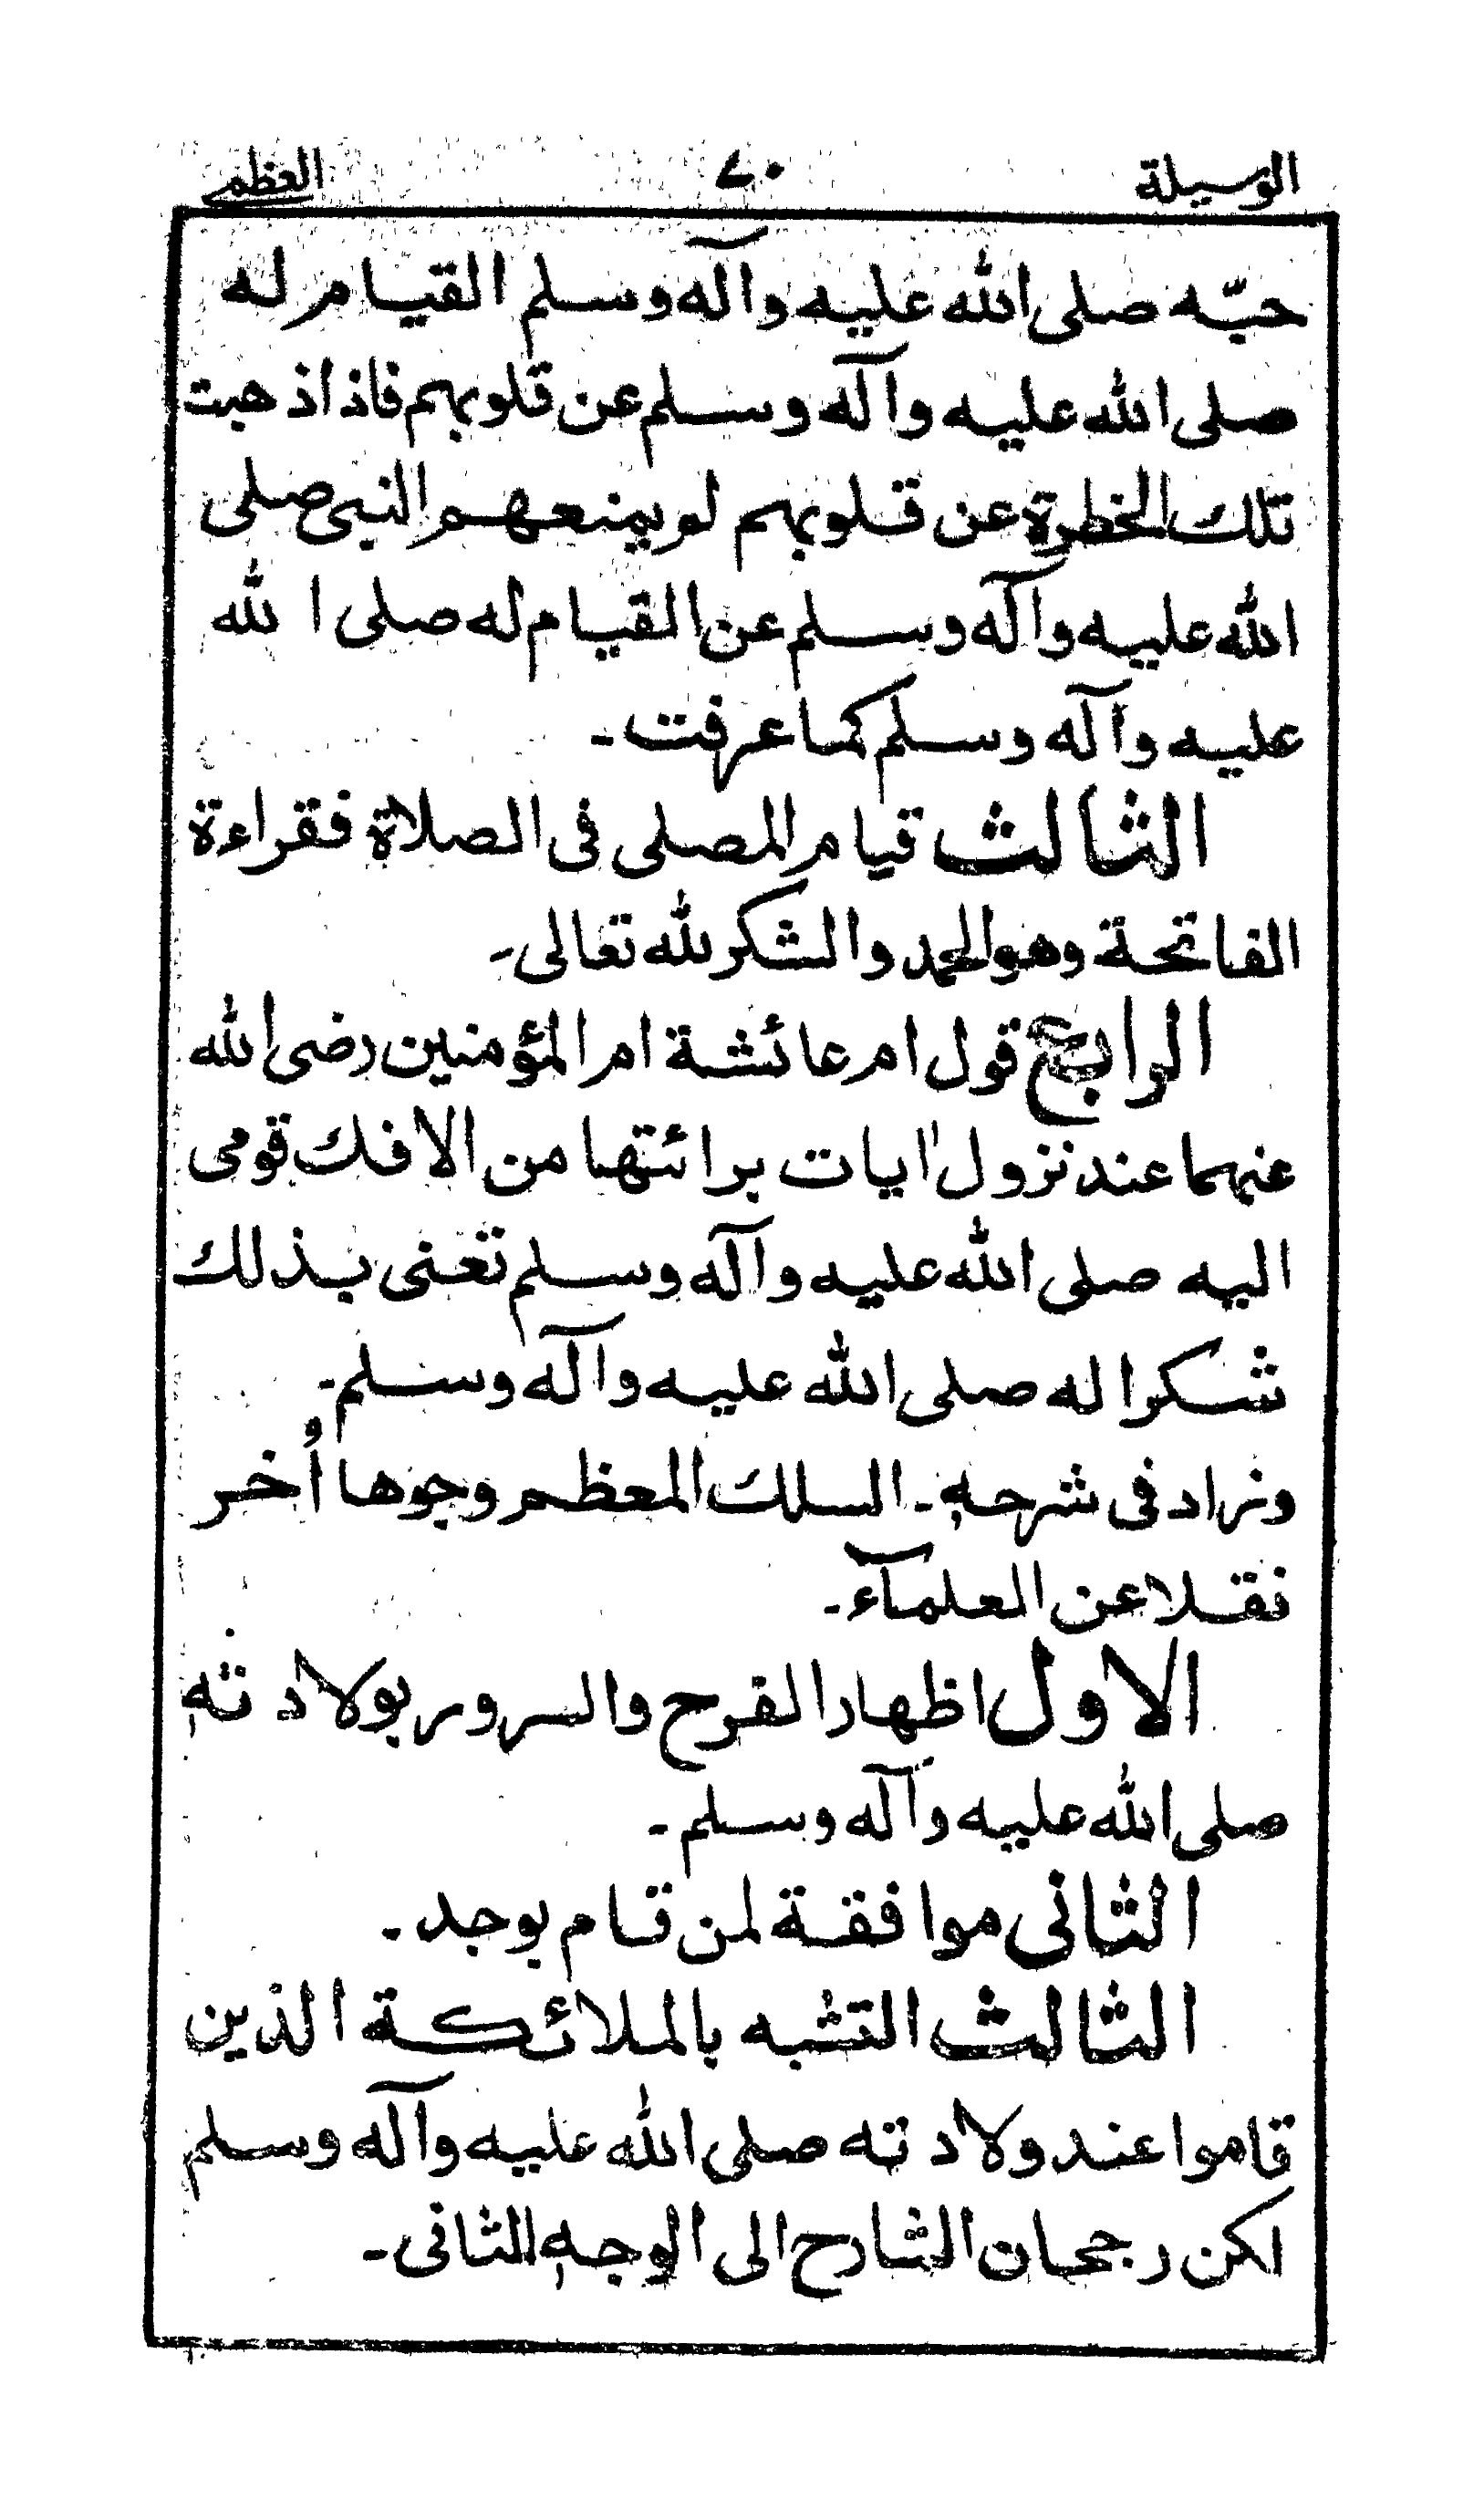 الوسيلة ٧٠ العظمى
حبّه صلى الله عليه وآله وسلم القيام له
صلى الله عليه وآله وسلم عن قلوبهم فاذا ذهبت
تلك الخطرة عن قلوبهم لو يمنعهم النبى صلى
الله عليه وآله وسلم عن القيام له صلى الله
عليه وآله وسلم كما عرفت۔
الثالث قيام المصلى فى الصلاة فقراءة
الفاتحة وهو الحمد والشكر لله تعالى۔
الرابع قول ام عائشة ام المؤمنين رضى الله
عنهما عند نزول ايات برائتها من الافك قومى
اليه صلى الله عليه وآله وسلم تعنى بذلك
شكرا له صلى الله عليه وآله وسلم۔
وزاد فى شرحه۔ السلك المعظم وجوها أُخر
نقلا عن العلمآء۔
الاول اظهار الفرح والسرور بولادته
صلى الله عليه وآله وسلم۔
الثانى موافقة لمن قام بوجد۔
الثالث التشبه بالملائكة الذين
قاموا عند ولادته صلى الله عليه وآله وسلم
لكن رجحان الشارح الى الوجه الثانى۔